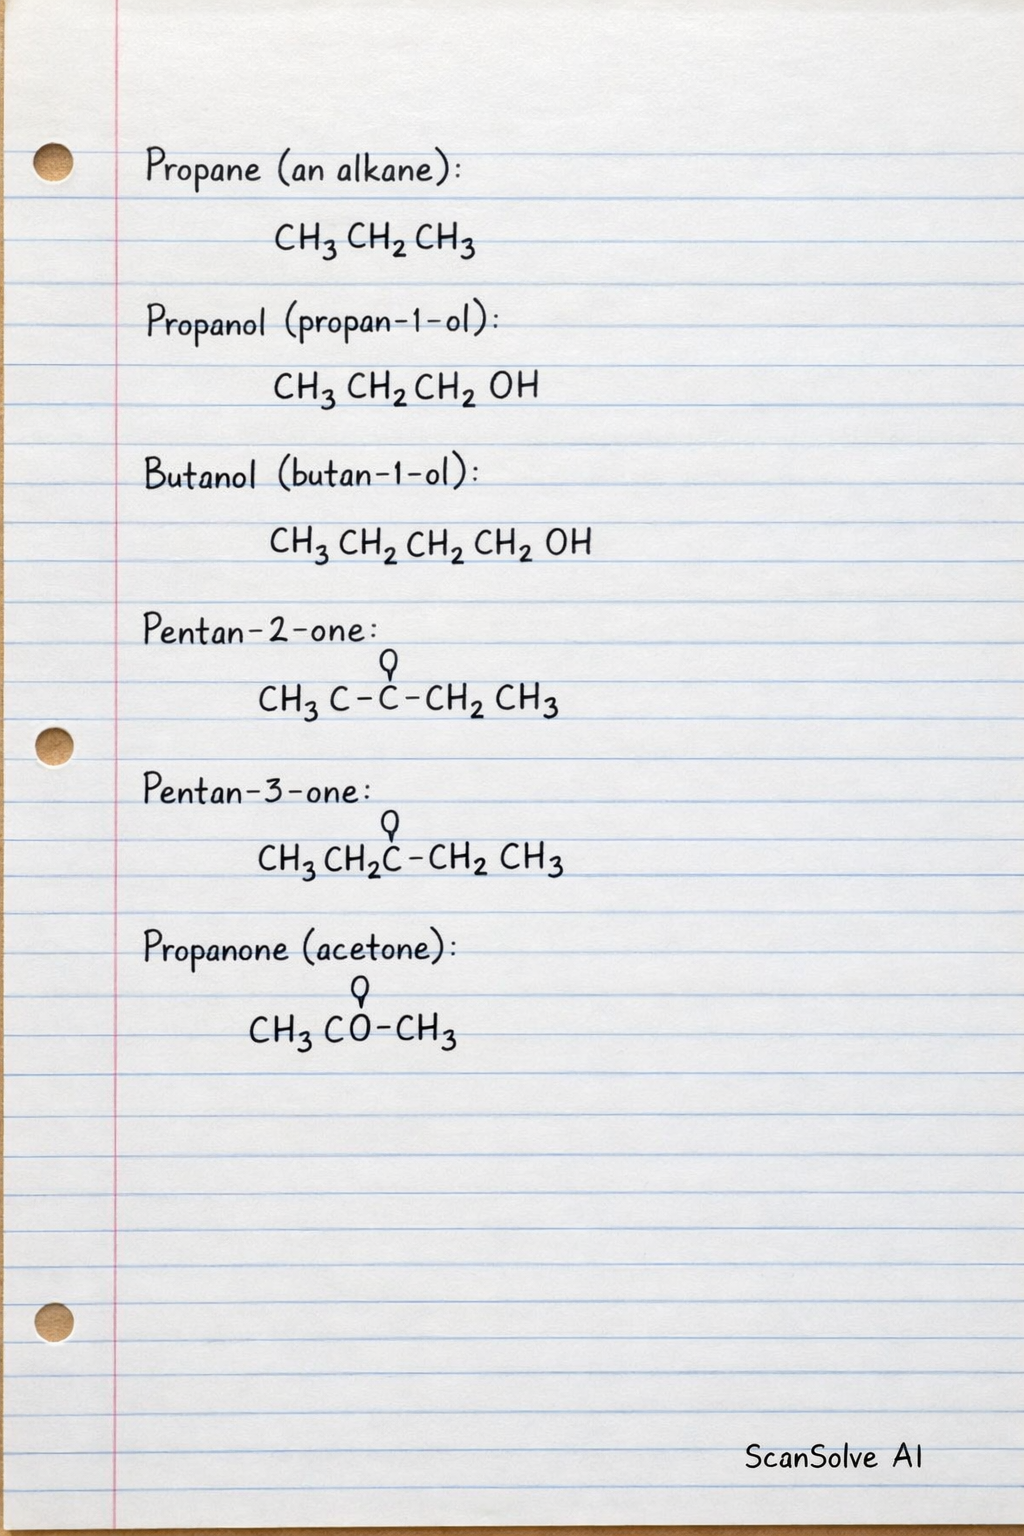 Propane (an alkane):
CH₃ CH₂ CH₃
Propanol (propan-1-ol):
CH₃ CH₂ CH₂ OH
Butanol (butan-1-ol):
CH₃ CH₂ CH₂ CH₂ OH
Pentan-2-one:
O
CH₃ C-C-CH₂ CH₃
Pentan-3-one:
O
CH₃ CH₂C-CH₂ CH₃
Propanone (acetone):
O
CH₃ CO-CH₃
ScanSolve AI